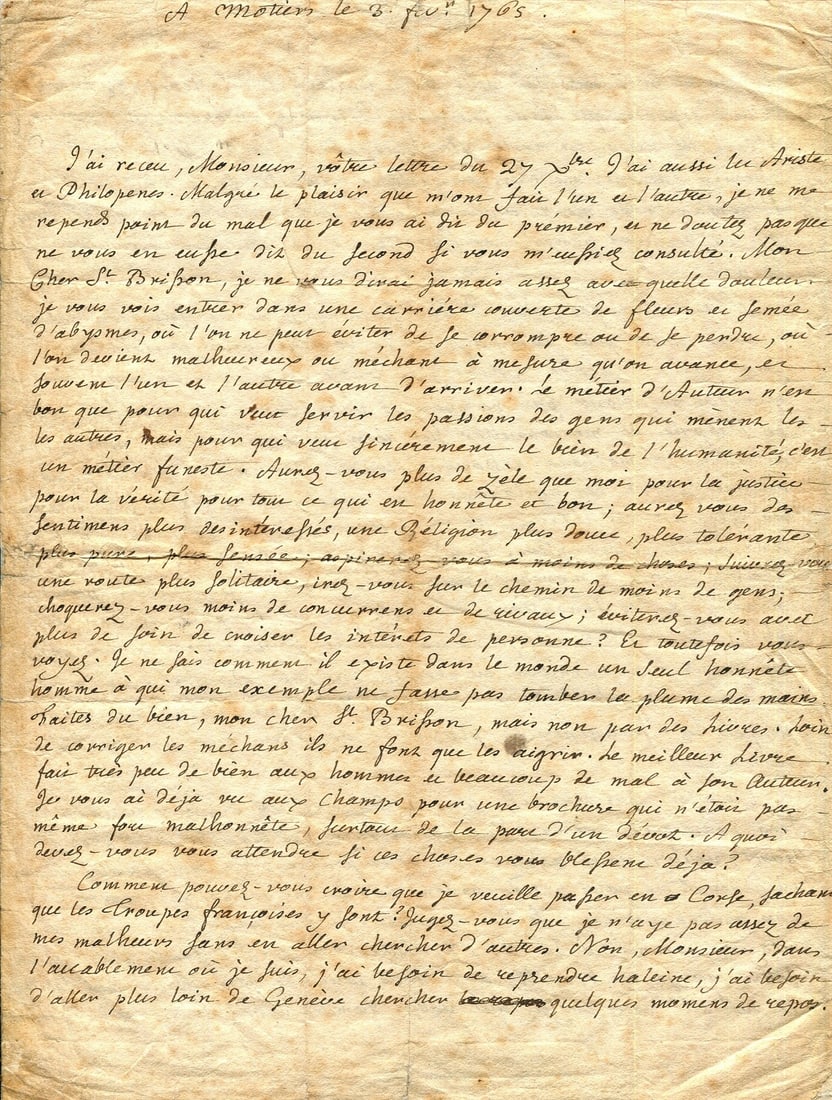 A Motiers le 3. fevr. 1765.
J'ai receu, Monsieur, vôtre lettre du 27 Xbre. J'ai aussi lu Ariste
et Philopenes. Malgré le plaisir que m'ont fait l'un et l'autre, je ne me
repends point du mal que je vous ai dit du prémier, et ne doutez pas que
ne vous en eusse dit du second si vous m'eussiez consulté. Mon
Cher St. Brisson, je ne vous dirai jamais assez avec quelle douleur
je vous vois entrer dans une carriére couverte de fleurs et semée
d'abysmes, où l'on ne peut éviter de se corrompre ou de se perdre, où
l'on devient malheureux ou méchant à mesure qu'on avance, et
souvent l'un et l'autre avant d'arriver. Le métier d'Auteur n'est
bon que pour qui veut servir les passions des gens qui mènent les
les autres, mais pour qui veut sincérement le bien de l'humanité, c'est
un métier funeste. Aurez-vous plus de zèle que moi pour la justice
pour la vérité pour tout ce qui est honnête et bon; aurez vous des
sentimens plus desintéressés, une Réligion plus douce, plus tolérante
plus pure, plus sensée; aspirerez-vous à moins de choses; suivrez-vous
une route plus solitaire, irez-vous sur le chemin de moins de gens;
choquerez-vous moins de concurrens et de rivaux; éviterez-vous avec
plus de soin de croiser les intérets de personne? Et toutefois vous
voyez. Je ne sais comment il existe dans le monde un seul honnête
homme à qui mon exemple ne fasse pas tomber la plume des mains.
Faites du bien, mon cher St. Brisson, mais non par des Livres. Loin
de corriger les méchans ils ne font que les aigrir. Le meilleur Livre
fait très peu de bien aux hommes et beaucoup de mal à son Auteur.
Je vous ai déja vu aux champs pour une brochure qui n'étoit pas
même fort malhonnête, surtout de la part d'un dévot. A quoi
devez-vous vous attendre si ces choses vous blessent déja?
Comment pouvez-vous croire que je veuille passer en Corse, sachant
que les Troupes françoises y sont? Jugez-vous que je n'aye pas assez de
mes malheurs sans en aller chercher d'autres. Non, Monsieur, dans
l'accablement où je suis, j'ai besoin de reprendre haleine, j'ai besoin
d'aller plus loin de Genève chercher le repos quelques momens de repos.